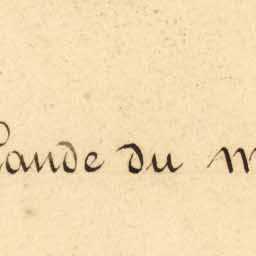 lande du m